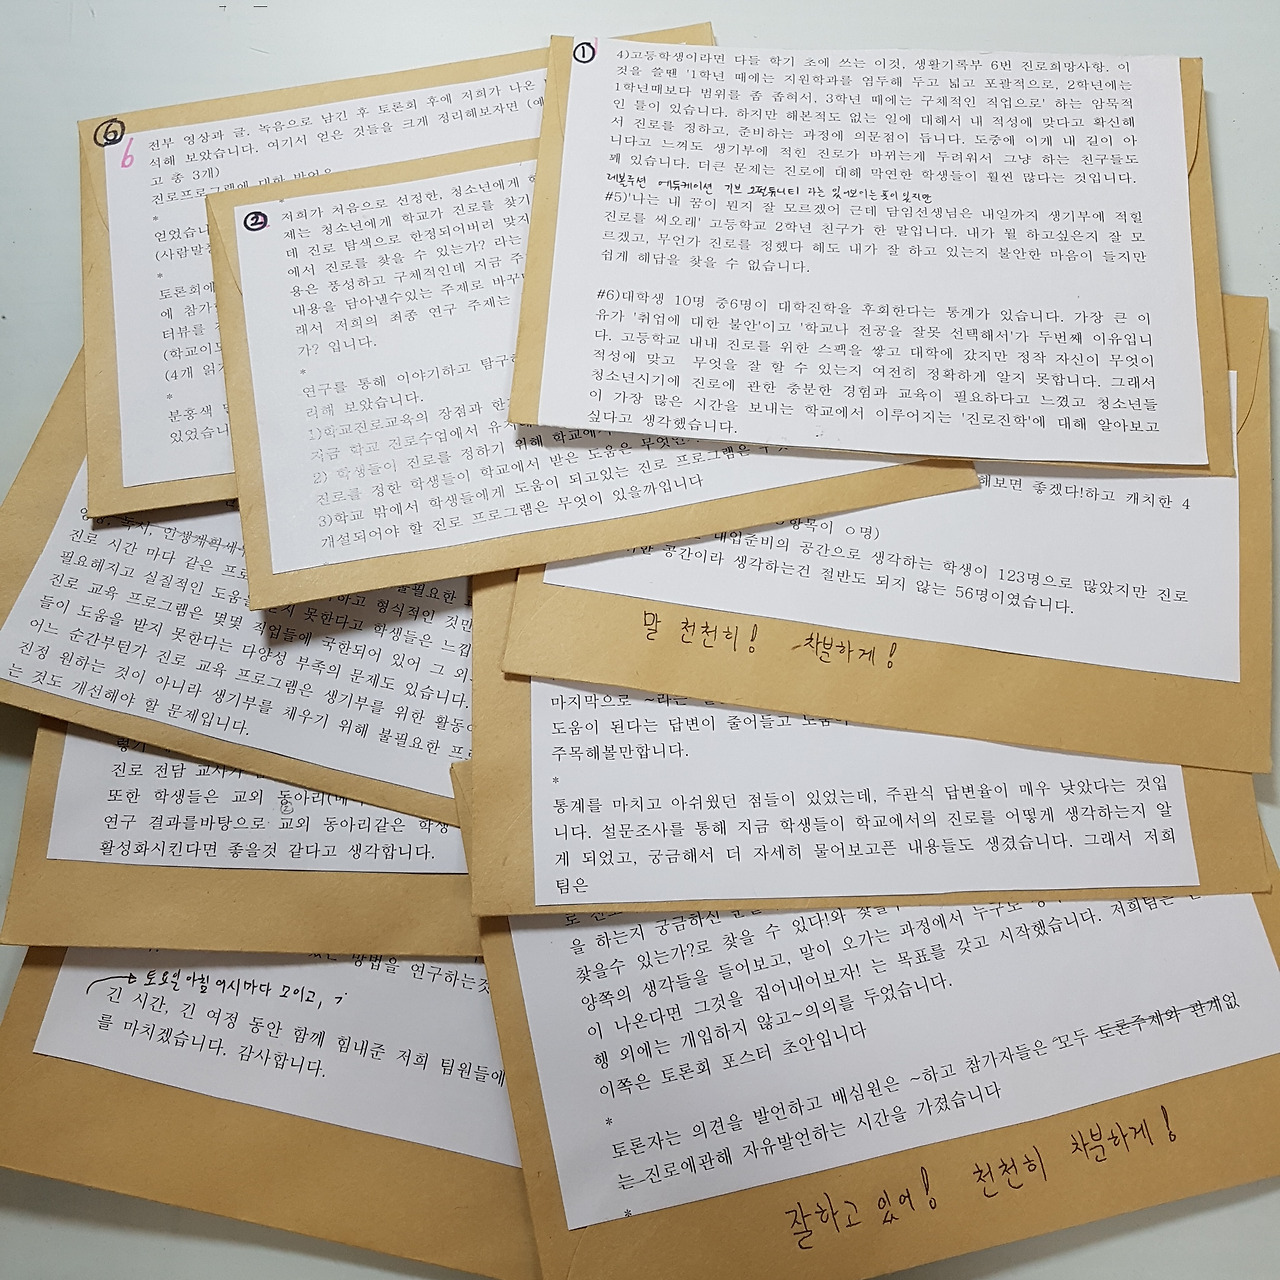 ①
4)고등학생이라면 다들 학기 초에 쓰는 이것, 생활기록부 6번 진로희망사항. 이
것을 쓸땐 '1학년 때에는 지원학과를 염두해 두고 넓고 포괄적으로, 2학년에는
1학년때보다 범위를 좀 좁혀서, 3학년 때에는 구체적인 직업으로' 하는 암묵적
인 틀이 있습니다. 하지만 해본적도 없는 일에 대해서 내 적성에 맞다고 확신해
서 진로를 정하고, 준비하는 과정에 의문점이 듭니다. 도중에 이게 내 길이 아
니다고 느껴도 생기부에 적힌 진로가 바뀌는게 두려워서 그냥 하는 친구들도
꽤 있습니다. 더큰 문제는 진로에 대해 막연한 학생들이 훨씬 많다는 것입니다.
레볼루션 에듀케이션 기브 오펄튜니티 라는 있어보이는 폿이 있지만
#5)'나는 내 꿈이 뭔지 잘 모르겠어 근데 담임선생님은 내일까지 생기부에 적힐
진로를 써오래' 고등학교 2학년 친구가 한 말입니다. 내가 뭘 하고싶은지 잘 모
르겠고, 무언가 진로를 정했다 해도 내가 잘 하고 있는지 불안한 마음이 들지만
쉽게 해답을 찾을 수 없습니다.
#6)대학생 10명 중6명이 대학진학을 후회한다는 통계가 있습니다. 가장 큰 이
유가 '취업에 대한 불안'이고 '학교나 전공을 잘못 선택해서'가 두번째 이유입니
다. 고등학교 내내 진로를 위한 스팩을 쌓고 대학에 갔지만 정작 자신이 무엇이
적성에 맞고 무엇을 잘 할 수 있는지 여전히 정확하게 알지 못합니다. 그래서
청소년시기에 진로에 관한 충분한 경험과 교육이 필요하다고 느꼈고 청소년들
이 가장 많은 시간을 보내는 학교에서 이루어지는 '진로진학'에 대해 알아보고
싶다고 생각했습니다.
⑥
6
전부 영상과 글. 녹음으로 남긴 후 토론회 후에 저희가 나온
석해 보았습니다. 여기서 얻은 것들을 크게 정리해보자면
고 총 3개)
진로프로그램에 대한 발언은
*
얻었습니
(사람말
*
토론회에
에 참가
터뷰를
(학교이
(4개 읽
*
분홍색
있었습니
②
저희가 처음으로 선정한, 청소년에게
제는 청소년에게 학교가 진로를 찾기
데 진로 탐색으로 한정되어버려 맞지
에서 진로를 찾을 수 있는가? 라는
용은 풍성하고 구체적인데 지금 주
내용을 담아낼수있는 주제로 바꾸
래서 저희의 최종 연구 주제는
가? 입니다.
*
연구를 통해 이야기하고 탐구
리해 보았습니다.
1)학교진로교육의 장점과 한
지금 학교 진로수업에서 유
2) 학생들이 진로를 정하기 위해 학교에서 받은 도움은 무엇인
진로를 정한 학생들이 학교에서 받은 도움은
3)학교 밖에서 학생들에게 도움이 되고있는 진로 프로그램은
개설되어야 할 진로 프로그램은 무엇이 있을까입니다
해보면 좋겠다!하고 캐치한 4
항목이 0명)
대입준비의 공간으로 생각하는 학생이 123명으로 많았지만 진로
공간이라 생각하는건 절반도 되지 않는 56명이였습니다.
말 천천히! 차분하게!
진로 시간 마다 같은
필요해지고 실질적인 도움을 받지 못한다고 학생들은 느낍
진로 교육 프로그램은 몇몇 직업들에 국한되어 있어 그 외
들이 도움을 받지 못한다는 다양성 부족의 문제도 있습니다.
어느 순간부턴가 진로 교육 프로그램은 생기부를 위한 활동
진정 원하는 것이 아니라 생기부를 채우기 위해 불필요한
는 것도 개선해야 할 문제입니다.
마지막으로 ~라는
도움이 된다는 답변이 줄어들고
주목해볼만합니다.
*
통계를 마치고 아쉬웠던 점들이 있었는데, 주관식 답변율이 매우 낮았다는 것입
니다. 설문조사를 통해 지금 학생들이 학교에서의 진로를 어떻게 생각하는지 알
게 되었고, 궁금해서 더 자세히 물어보고픈 내용들도 생겼습니다. 그래서 저희
팀은
진로 전담 교사가
또한 학생들은 교외 동아리
②
연구 결과를바탕으로 교외 동아리같은 학생
활성화시킨다면 좋을것 같다고 생각합니다.
을 하는지 궁금하신
찾을수 있는가?로 찾을 수 있다!와
양쪽의 생각들을 들어보고, 말이 오가는 과정에서 누구도
이 나온다면 그것을 집어내어보자! 는 목표를 갖고 시작했습니다. 저희팀은
행 외에는 개입하지 않고~의의를 두었습니다.
이쪽은 토론회 포스터 초안입니다
*
토론자는 의견을 발언하고 배심원은 ~하고 참가자들은 "모두 토론주제와 관계없
는 진로에관해 자유발언하는 시간을 가졌습니다
*
잘하고 있어! 천천히 차분하게!
방법을 연구하는것
토요일 아침 여시마다 모이고,
긴 시간, 긴 여정 동안 함께 힘내준 저희 팀원들에
를 마치겠습니다. 감사합니다.